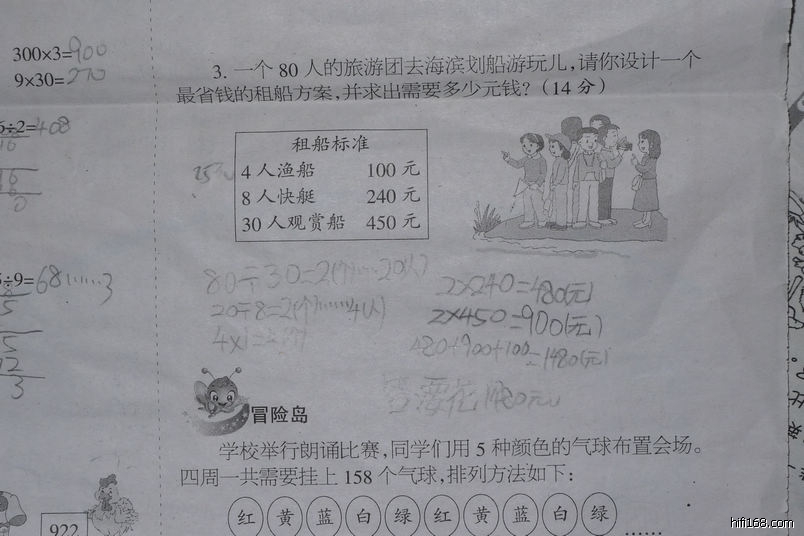 300×3=900
9×30=270
5÷2=408
5÷9=68……3
3. 一个 80 人的旅游团去海滨划船游玩儿,请你设计一个
最省钱的租船方案,并求出需要多少元钱?(14 分)
租船标准
4 人渔船 100 元
8 人快艇 240 元
30 人观赏船 450 元
80÷30=2(个)……20(人)
20÷8=2(个)……4(人)
4×1=
2×240=480(元)
2×450=900(元)
480+900+100=1480(元)
答:要花1480元
冒险岛
学校举行朗诵比赛,同学们用 5 种颜色的气球布置会场。
四周一共需要挂上 158 个气球,排列方法如下:
红 黄 蓝 白 绿 红 黄 蓝 白 绿 ……
922
hifi168.com